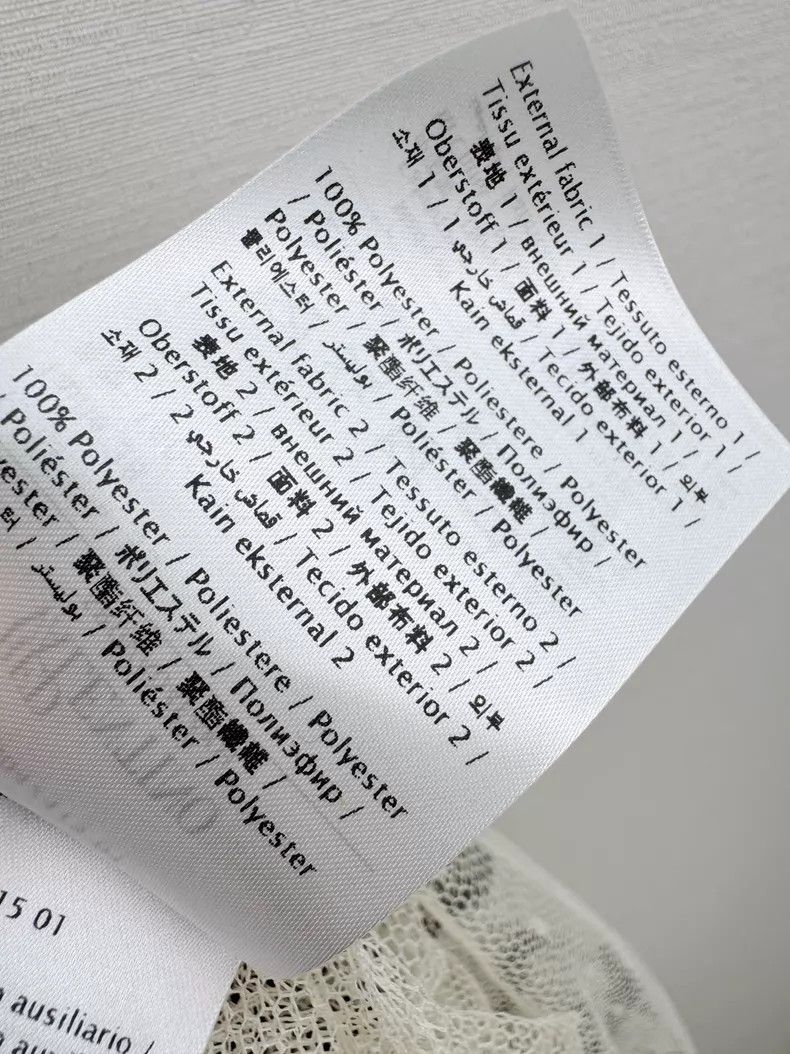 External fabric 1 / Tessuto esterno 1 /
Tissu extérieur 1 / Tejido exterior 1 /
表地 1 / внешний материал 1 /
Oberstoff 1 / 面料 1 / 外部布料 1 / 외부
소재 1 / قماش خارجي 1 / Tecido exterior 1 /
Kain eksternal 1
100% Polyester / Poliestere / Polyester
/ Poliéster / ポリエステル / Полиэфир /
Polyester / 聚酯纤维 / 聚酯纖維 /
폴리에스터 / بوليستر / Poliéster / Polyester
External fabric 2 / Tessuto esterno 2 /
Tissu extérieur 2 / Tejido exterior 2 /
表地 2 / внешний материал 2 /
Oberstoff 2 / 面料 2 / 外部布料 2 / 외부
소재 2 / قماش خارجي 2 / Tecido exterior 2 /
Kain eksternal 2
100% Polyester / Poliestere / Polyester
/ Poliéster / ポリエステル / Полиэфир /
yester / 聚酯纤维 / 聚酯纖維 /
터 / بوليستر / Poliéster / Polyester
15 01
ausiliario /